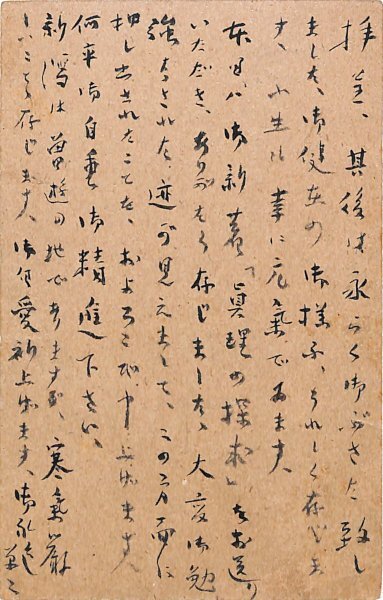 拝呈、其後は永らく御ぶさた致し
ました、御健在の御様子、うれしく存じま
す、小生は幸に元氣であます
本日ハ御新著「眞理の探求」を御送り
いただき、ありがたく存じました、大変御勉
強なされた迹が見えまして、この方面に
押し出されたことを、およろこび申上げます
何卒御自重御精進下さい、
新潟は曽遊の地でありますが、寒氣厳
しいことゝ存じます、御自愛祈上げます、御礼迄 草々